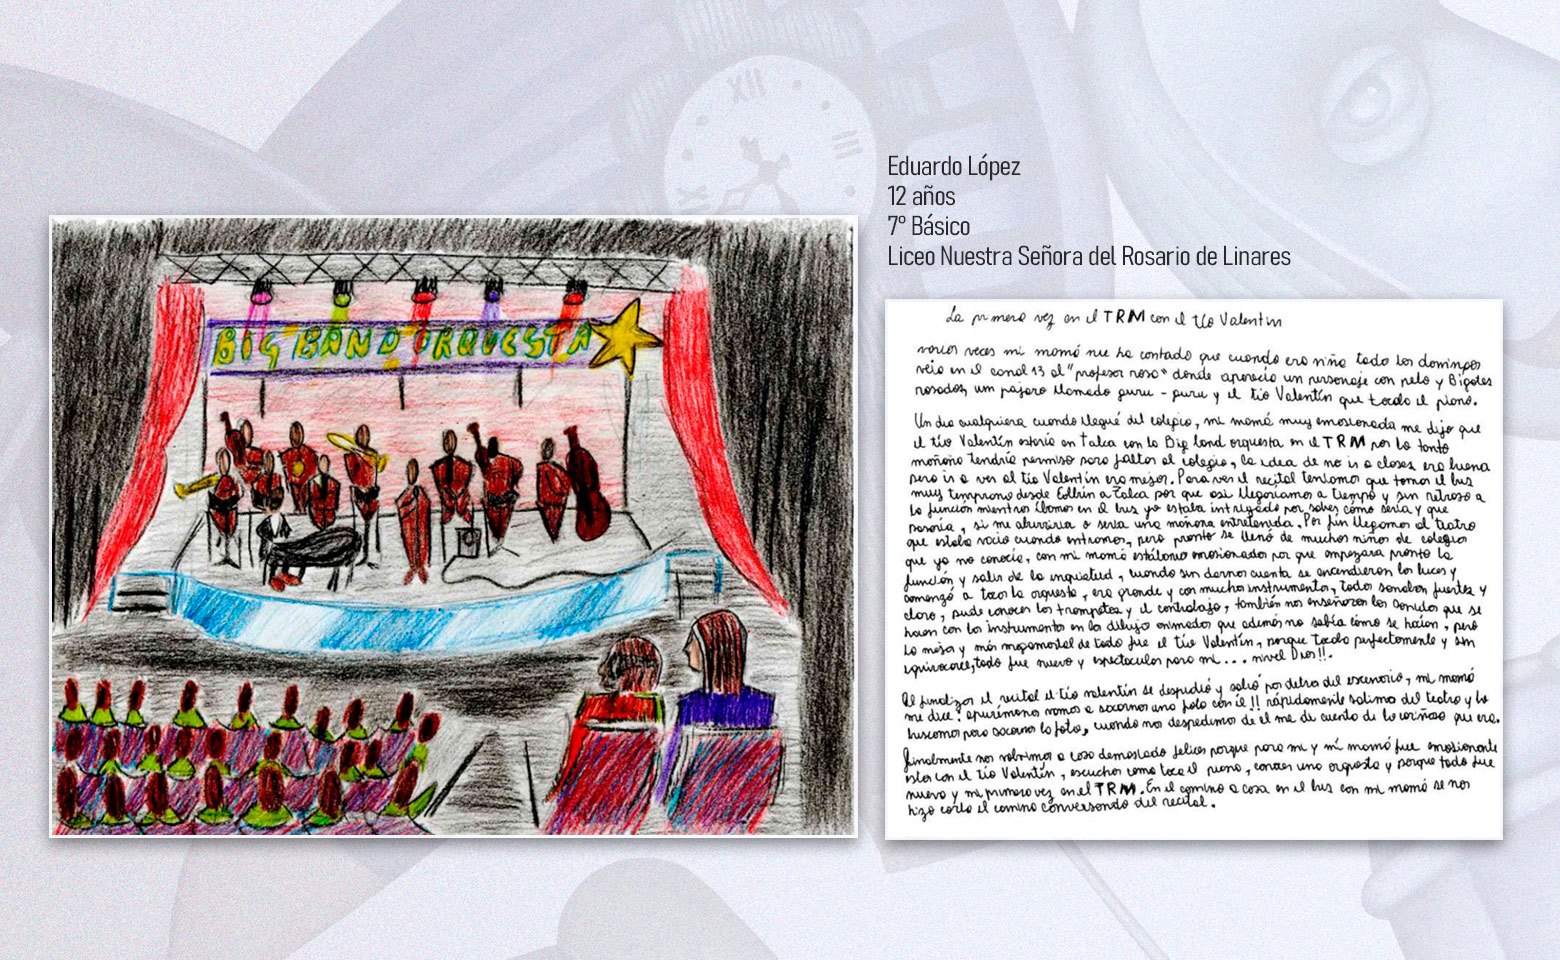 XII
III
Eduardo López
12 años
7º Básico
Liceo Nuestra Señora del Rosario de Linares
BIG BAND ORQUESTA
La primera vez en el TRM con el tío Valentin
varias veces mi mamá me ha contado que cuando era niña todo los domingos
veía en el canal 13 al "profesor rosa" donde aparecía un personaje con pelo y Bigotes
rosados, um pájaro llamado guru - guru y el tío Valentín que tocaba el piano.
Un dia cualquiera cuando llegué del colegio, mi mamá muy emosionada me dijo que
el tío Valentín estaría en talca con la Big band orquesta en el TRM por lo tanto
mañana tendría permiso para faltar al colegio, la idea de no ir a clases era buena
pero ir a ver al tío Valentín era mejor. Para ver el recital teniamos que tomar el bus
muy temprano desde a Talca por que asi llegariamos a tiempo y sin retraso a
la función mientras ibamos en el bus yo estaba intrigado por saber cómo sería y que
pasaría, si me aburriria o seria una mañana entretenida. Por fin llegamos al teatro
que estaba vacio cuando entramos, pero pronto se llenó de muchos niños de colegios
que yo no conocía, con mi mamá estábamos emosionados por que empezara pronto la
función y salir de la inquietud, cuando sin darnos cuenta se encendieron las luces y
comenzó a tocar la orquesta, era grande y con muchos instrumentos, todos sonaban fuertes y
claro, pude conocer las trompetas y el contrabajo, también nos enseñaron los sonidos que se
hacen con los instrumentos en los dibujos animados que además no sabía cómo se hacían, pero
lo mejor y más de todo fue el tío Valentín, porque tocaba perfectamente y sin
equivocarse, todo fue nuevo y espectacular para mi... nivel Dios!!.
Al finalizar el recital el tío valentín se despidió y salió por detras del escenario, mi mamá
me dice: apurémonos vamos a sacarnos una foto con él!! rápidamente salimos del teatro y lo
buscamos para sacarnos la foto, cuando nos despedimos de él me di cuenta de lo cariñoso que era.
Finalmente nos volvimos a casa demasiado felices porque para mi y mi mamá fue emosionante
estar con el tío Valentín, escuchar como toca el piano, conocer una orquesta y porque todo fue
nuevo y mi primera vez en el TRM. En el camino a casa en el bus con mi mamá se nos
hizo corto el camino conversando del recital.